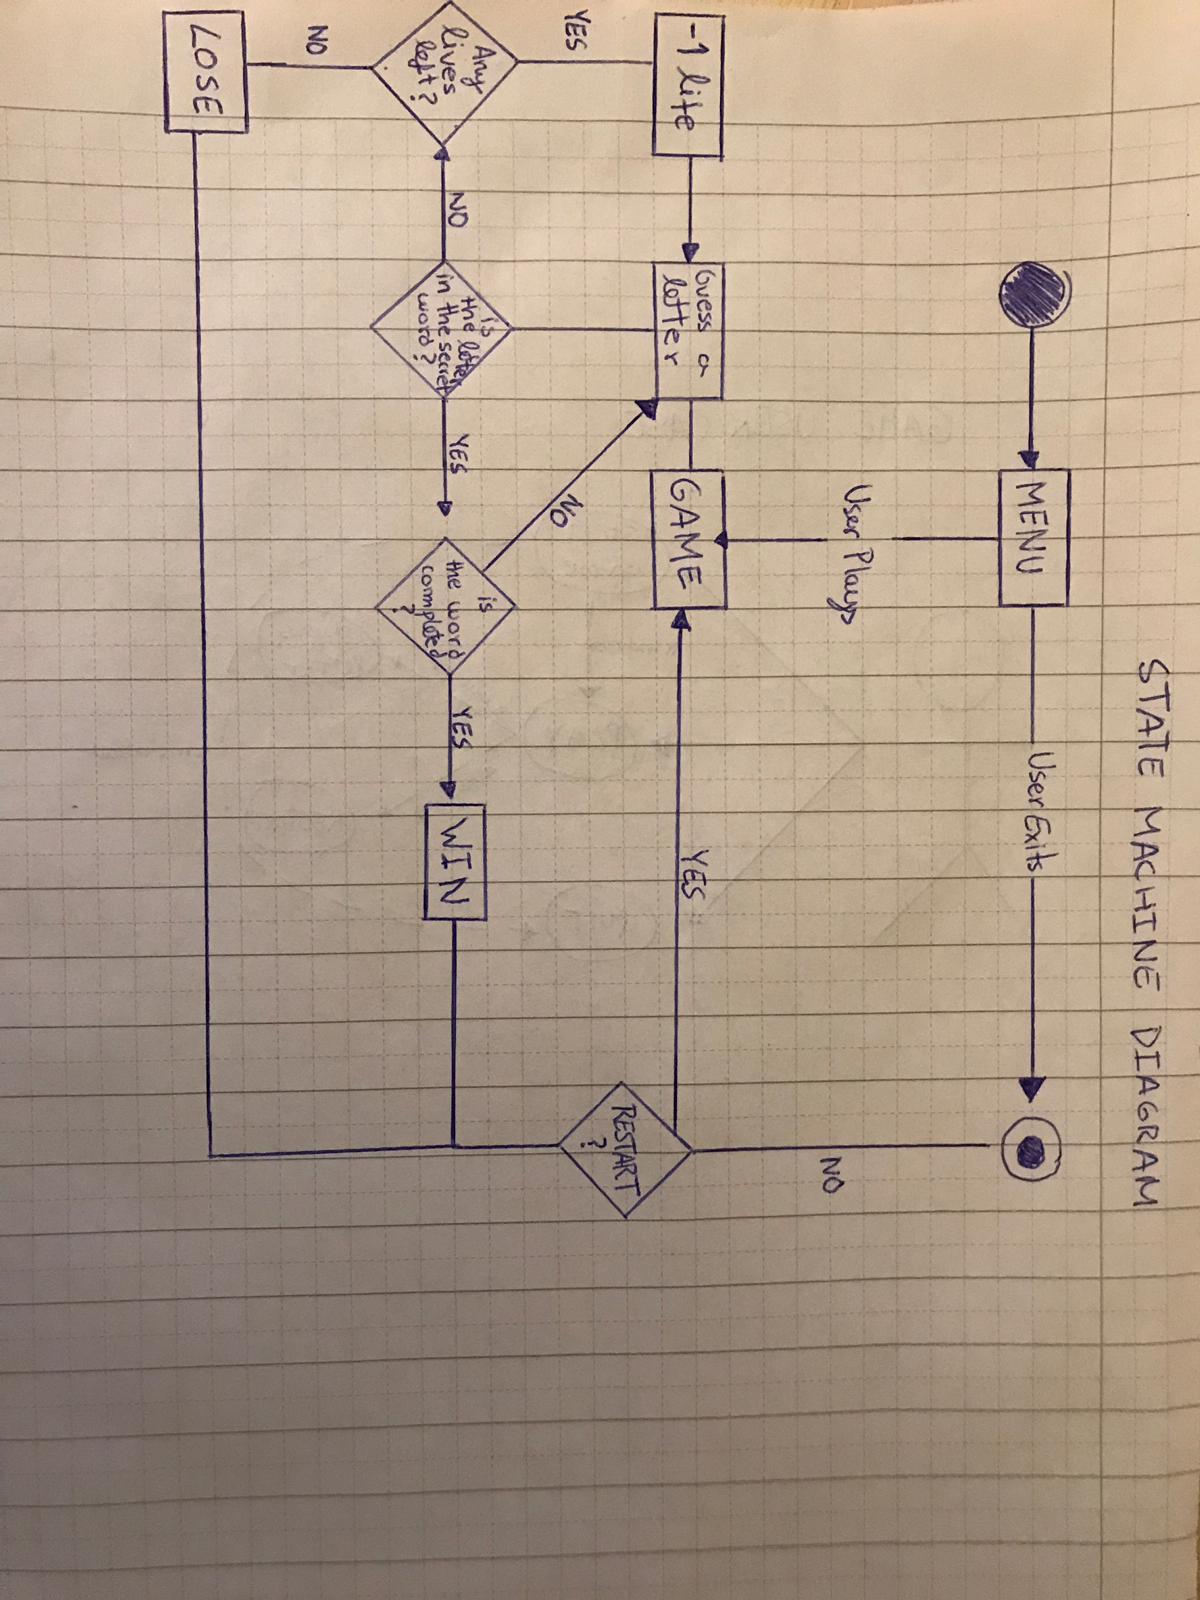 STATE MACHINE DIAGRAM
MENU
User Exits
User Plays
NO
-1 life
Guess a
letter
GAME
YES
RESTART
?
YES
NO
Any
lives
left?
NO
is
the letter
in the secret
word?
YES
is
the word
completed
?
YES
WIN
NO
LOSE